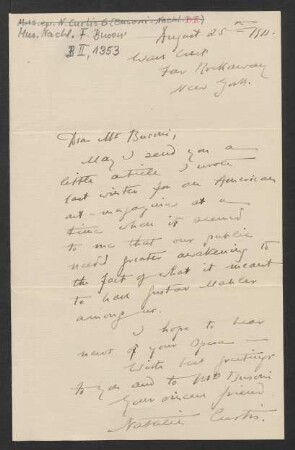 Mus. ep. N. Curtis 6 (Busoni-Nachl. B II)
Mus. Nachl. F. Busoni
B II, 1353
August 25
Far Rockaway
New York.
Dear Mr Busoni,
May I send you a
little article I wrote
last winter for an American
art-magazine at a
time when it seemed
to me that our public
needed greater awakening to
the fact of what it meant
to have Gustav Mahler
among us.
I hope to hear
news of your opera —
With best greetings
to you and to Mrs Busoni
Your sincere friend
Natalie Curtis.